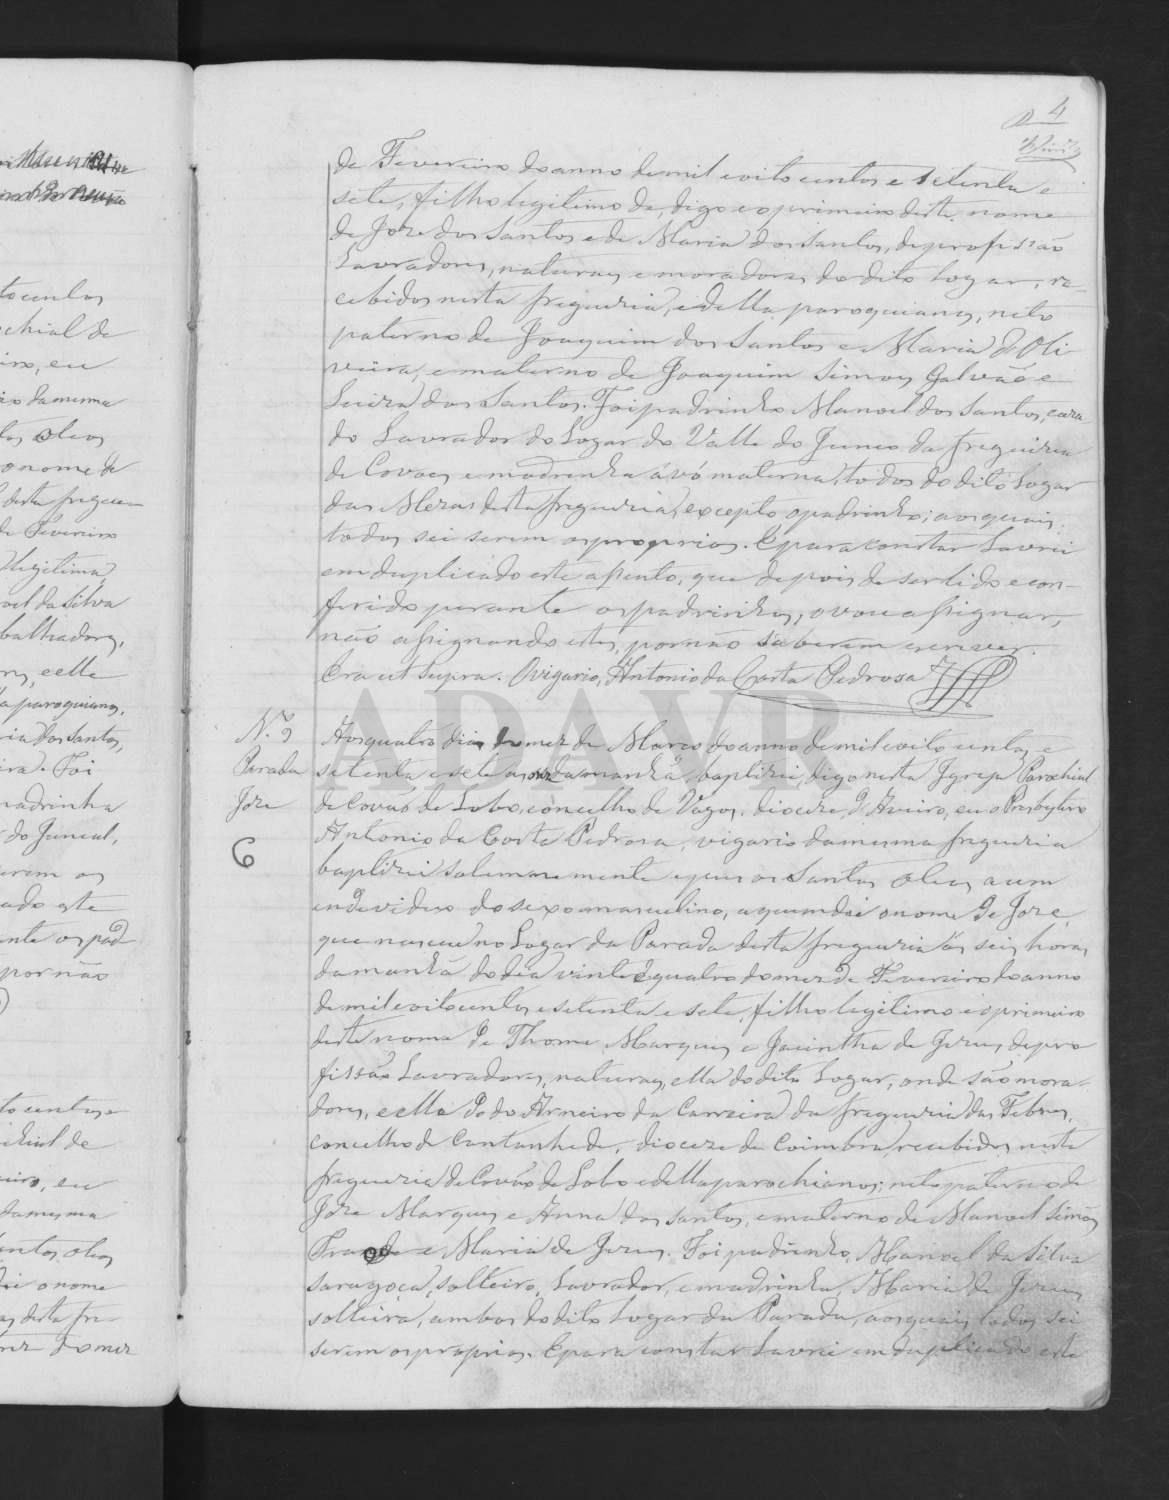 4
de Fevereiro do anno de mil e oito centos e setenta e
sete, filho legitimo de, digo e o primeiro deste nome
de Joze dos Santos e de Maria dos Santos, de profissão
Lavradores, naturaes e moradores do dito Logar, re-
cebidos nesta freguezia, e della paroquianos, neto
paterno de Joaquim dos Santos e Maria d'Oli
veira, e materno de Joaquim Simoes Galvão e
Luiza dos Santos. Foi padrinho Manoel dos Santos, caza
do Lavrador do Logar do Valle do Junco da freguezia
de Covoes e madrinha a vó materna, todos do dito Logar
das Mezas desta freguezia, excepto o padrinho; aos quais
todos sei serem os proprios. E para constar Lavrei
em duplicado este assento, que depois de ser lido e con-
ferido perante os padrinhos, o vou assignar,
não assignando estes, por não saberem escrever.
Era ut supra. O vigario, Antonio da Costa Pedrosa
N.º 9
Parada
Joze
6
Aos quatro dias do mez de Março do anno de mil e oito centos e
setenta e sete as onze da manhã, baptizei, digo nesta Igreja Parochial
de Covão de Lobo, concelho de Vagos, dioceze d'Aveiro, eu o Presbytero
Antonio da Costa Pedrosa, vigario da mesma freguezia
baptizei solemne mente e puz os Santos oleos a um
endeviduo do sexo masculino, a quem dei o nome de Joze,
que nasceu no Logar da Parada desta freguezia ás seis horas
da manhã do dia vinte e quatro do mez de Fevereiro do anno
de mil e oito centos e setenta e sete, filho legitimo e o primeiro
deste nome de Thome Marques e Jacintha de Jezus, de pro
fissão Lavradores, naturaes, elle do dito Logar, onde são mora-
dores, e ella do do Arneiro da Carreira da freguezia das Febres,
concelho de Cantanhede, dioceze de Coimbra, recebidos nesta
freguezia de Covão de Lobo e della parochianos; neto paterno de
Joze Marques e Anna dos Santos, e materno de Manoel Simões
e Maria de Jezus. Foi padrinho, Manoel da Silva
saragoça, solteiro, Lavrador, e madrinha, Maria de Jezus
solteira, ambos do dito Logar da Parada, aos quais todos sei
serem os proprios. E para constar Lavrei em duplicado este
ADAVR